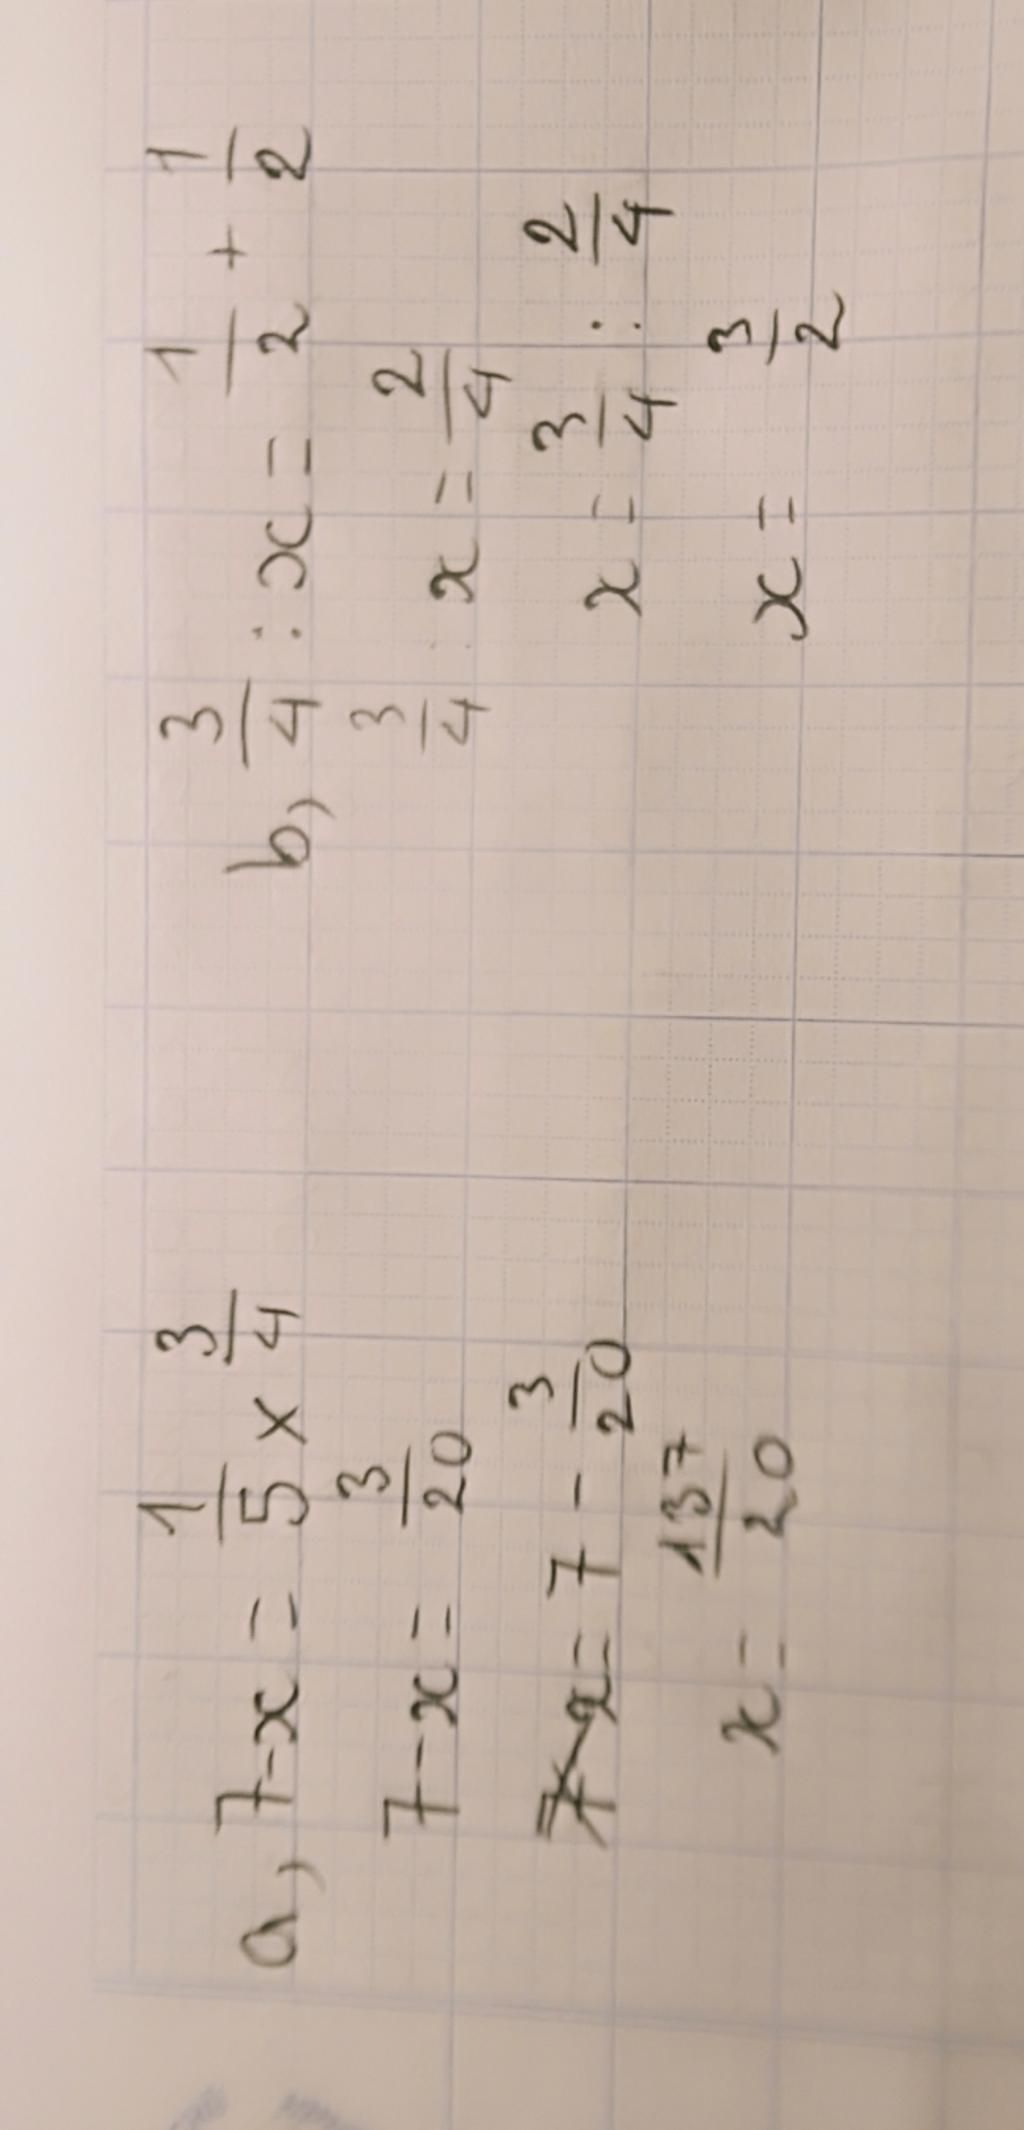 a, 7 - x = 1/5 × 3/4
7 - x = 3/20
x = 7 - 3/20
x = 137/20
b, 3/4 : x = 1/2 + 1/2
3/4 : x = 2/4
x = 3/4 : 2/4
x = 3/2